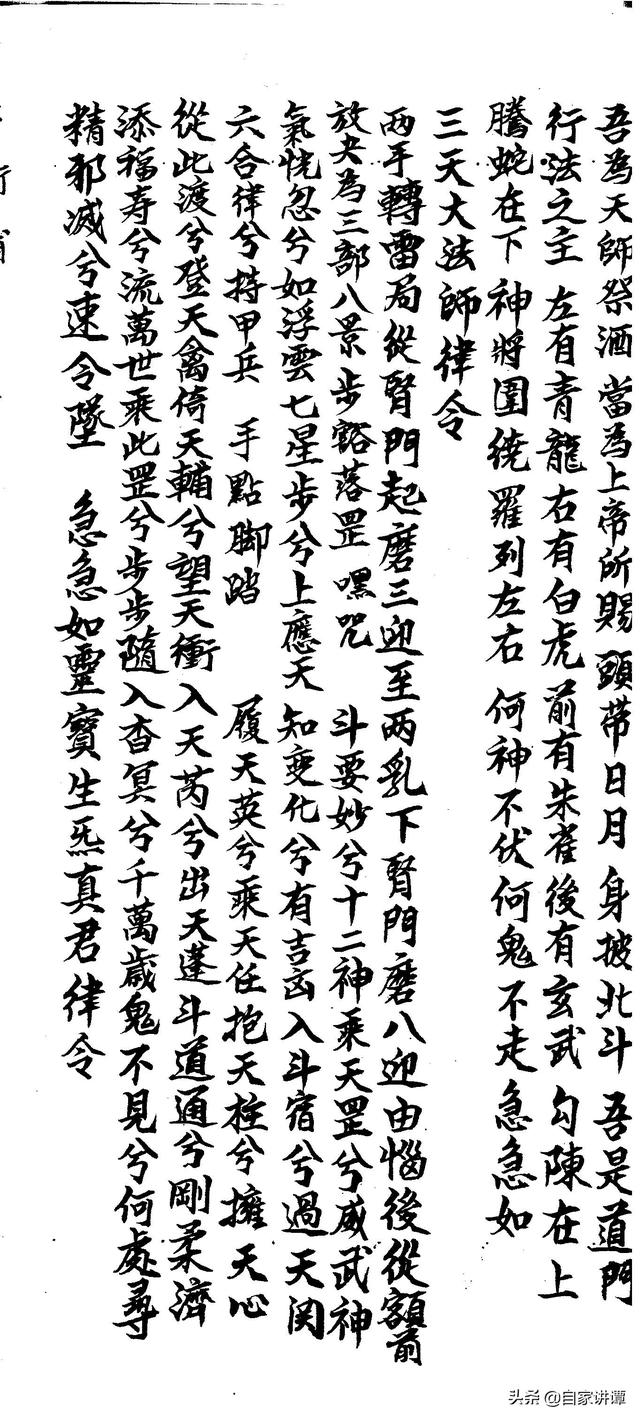 吾為天師祭酒當為上帝所賜 頭带日月 身披北斗 吾是道門
行法之主 左有青龍 右有白虎 前有朱雀 後有玄武 勾陳在上
騰蛇在下 神將圍绕 羅列左右 何神不伏 何鬼不走 急急如
三天大法師律令
两手轉雷局從腎門起磨三迎至两乳下腎門磨八迎由惱後從額前
放夬為三部八景步豁落罡 嘿咒 斗要妙兮十二神乘天罡兮威武神
氣恍忽兮如浮雲七星步兮上應天 知变化兮有吉凶入斗宿兮過天関
六合律兮持甲兵 手點脚踏 履天英兮乘天任抱天柱兮擁天心
從此渡兮登天禽倚天輔兮望天衝 入天芮兮出天蓬斗道通兮剛柔濟
添福寿兮流萬世乘此罡兮步步隨 入杳冥兮千萬歲鬼不見兮何處尋
精邪滅兮速令墜 急急如靈寶生炁真君律令
头条 @自家讲谭